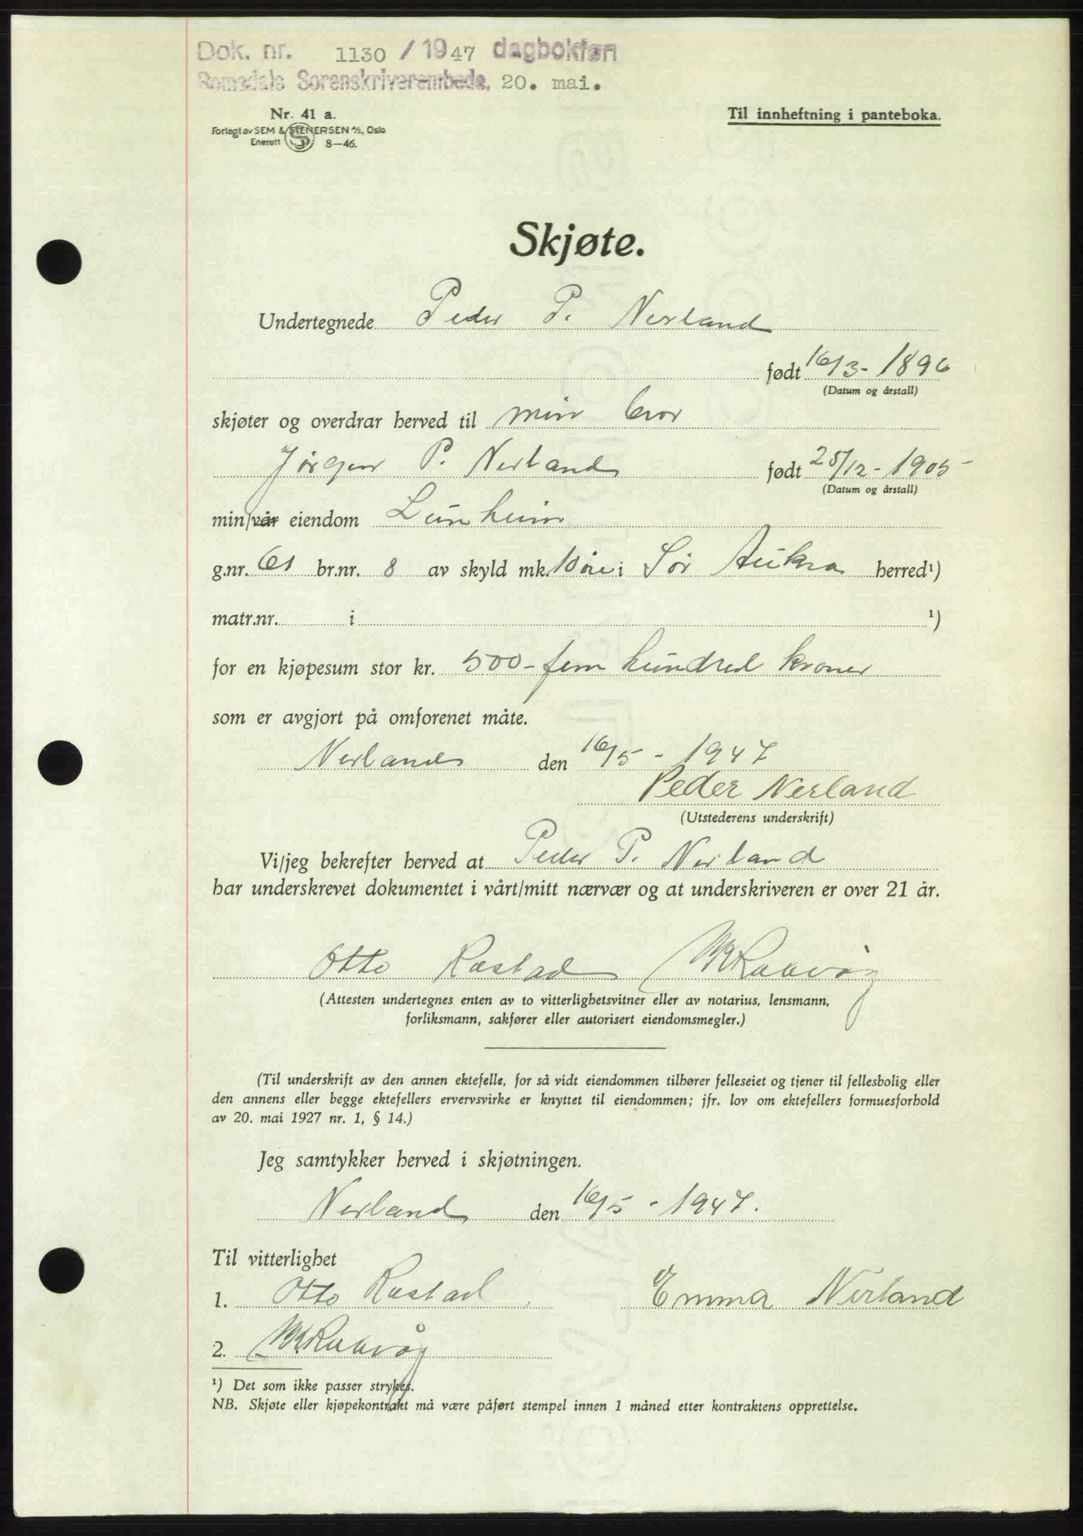 Dok. nr. 1130 / 1947 dagbokført
Romsdals Sorenskriverembede, 20. mai.
Nr. 41 a.
Til innheftning i panteboka.
Forlagt av SEM & STENERSEN A/S, Oslo
Enerett 8—46.
Skjøte.
Undertegnede Peder P. Nerland
født 16/3 - 1896
(Datum og årstall)
skjøter og overdrar herved til min bror
Jørgen P. Nerland født 28/12 - 1905
(Datum og årstall)
min/vår eiendom Lunheim
g.nr. 61 br.nr. 8 av skyld mk. 10 øre i Sør Aukra herred¹)
matr.nr. i ¹)
for en kjøpesum stor kr. 500 - fem hundred kroner
som er avgjort på omforenet måte.
Nerland den 16/5 - 1947
Peder Nerland
(Utstederens underskrift)
Vi/jeg bekrefter herved at Peder P. Nerland
har underskrevet dokumentet i vårt/mitt nærvær og at underskriveren er over 21 år.
Otto Rastad
(Attesten undertegnes enten av to vitterlighetsvitner eller av notarius, lensmann,
forliksmann, sakfører eller autorisert eiendomsmegler.)
(Til underskrift av den annen ektefelle, for så vidt eiendommen tilhører felleseiet og tjener til fellesbolig eller
den annens eller begge ektefellers ervervsvirke er knyttet til eiendommen; jfr. lov om ektefellers formuesforhold
av 20. mai 1927 nr. 1, § 14.)
Jeg samtykker herved i skjøtningen.
Nerland den 16/5 - 1947.
Til vitterlighet
1. Otto Rastad Emma Nerland
2.
¹) Det som ikke passer strykes.
NB. Skjøte eller kjøpekontrakt må være påført stempel innen 1 måned etter kontraktens opprettelse.